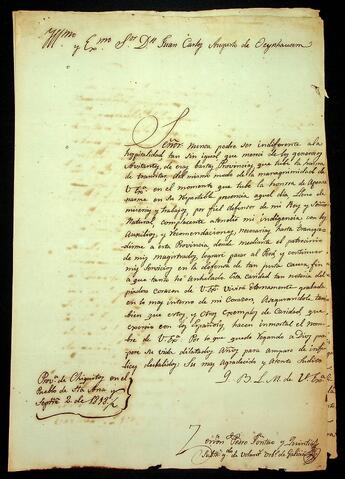 Illmo y Exmo Sor Dn Juan Carlos Augusto de Oeynhausem
Señor. Nunca podre ser indiferente a la
hospitalidad tan sin igual que mereci de los generosos
havitantes, de esas bastas Provincias, que tube la honrra
de transitar, del mismo modo de la magnanimidad de
V. Exa. en el momento que tube la honrra de apersonarme
en su respetable presencia aquel dia, lleno de
miserias y trabajos, por fiel defensor de mi Rey y Señor
Natural, complaciente atendio mi indigencia con los
auxilios, y recomendaciones, necesarios hasta transportarme
a esta Provincia donde mediante el patrocinio
de mis magistrados, lograré pasar al Perú, y continuar
mis servicios en la defensa de tan justa causa, fin
a que tanto he anhelado. Esta caridad tan notoria del
piadoso corazon de V. Exa. vivirá eternamente grabada
en lo mas interno de mi corazon, asegurandole tambien
que estos, y otros exemplos de caridad, que
exercio con los Españoles, hacen inmortal el nombre
de V. Exa. Por lo que quedo rogando a Dios prospere
su vida dilatados años para amparo de infelices
desvalidos: Su mas agradecido y atento subdito
Q. B. L. M. de V. Exa.
Prova. de Chiquitos en el
Pueblo de Sta. Ana y
Septre. 2 de 1818
Pedro
de Galicia